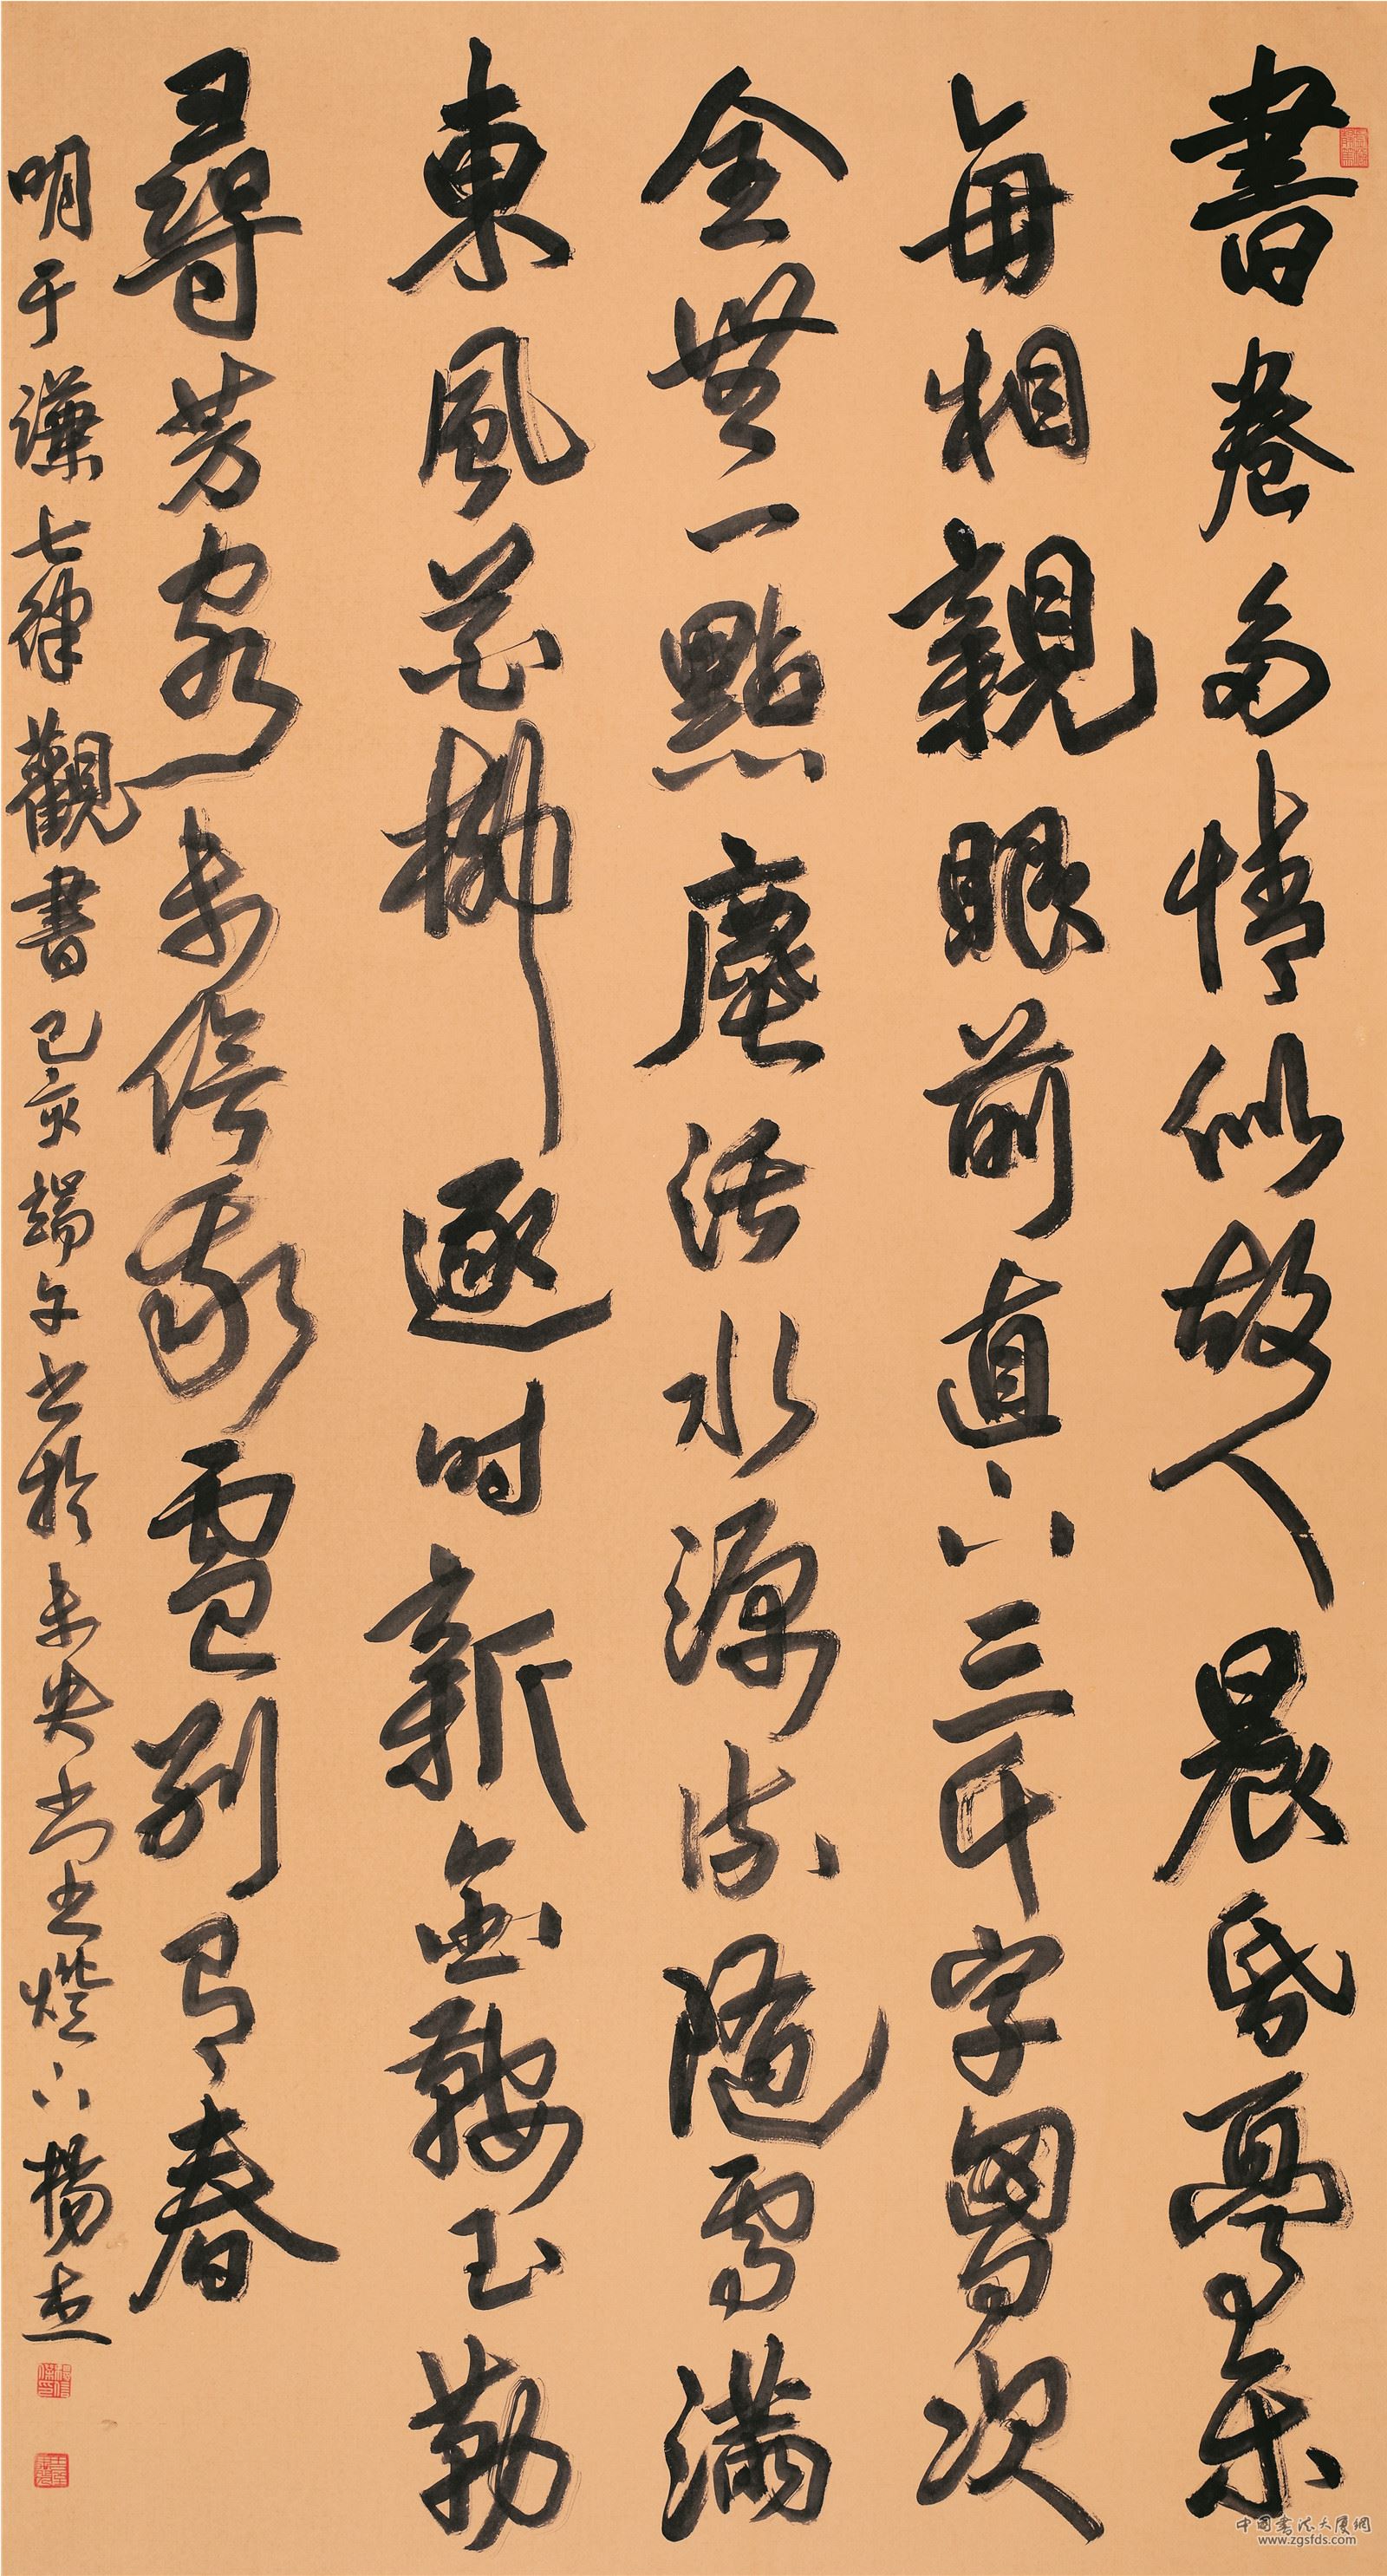 書卷多情似故人晨昏憂樂
每相親眼前直下三千字胸次
全無一點塵活水源流隨處滿
東風花柳逐时新金鞍玉勒
尋芳客未信我廬別有春
明于謙七律觀書己亥端午书於未央燈下楊杰
中国书法大厦網
www.zgsfds.com